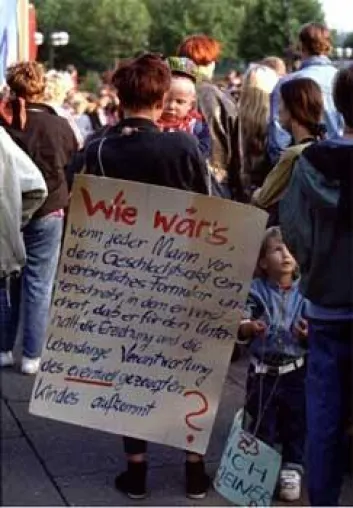 Wie wär's,
wenn jeder Mann vor
dem Geschlechtsakt ein
verbindliches Formular un-
terschreibt, in dem er versi-
chert, daß er für den Unter-
halt, die Erziehung und die
lebenslange Verantwortung
des eventuell gezeugten
Kindes aufkommt ?
ICH